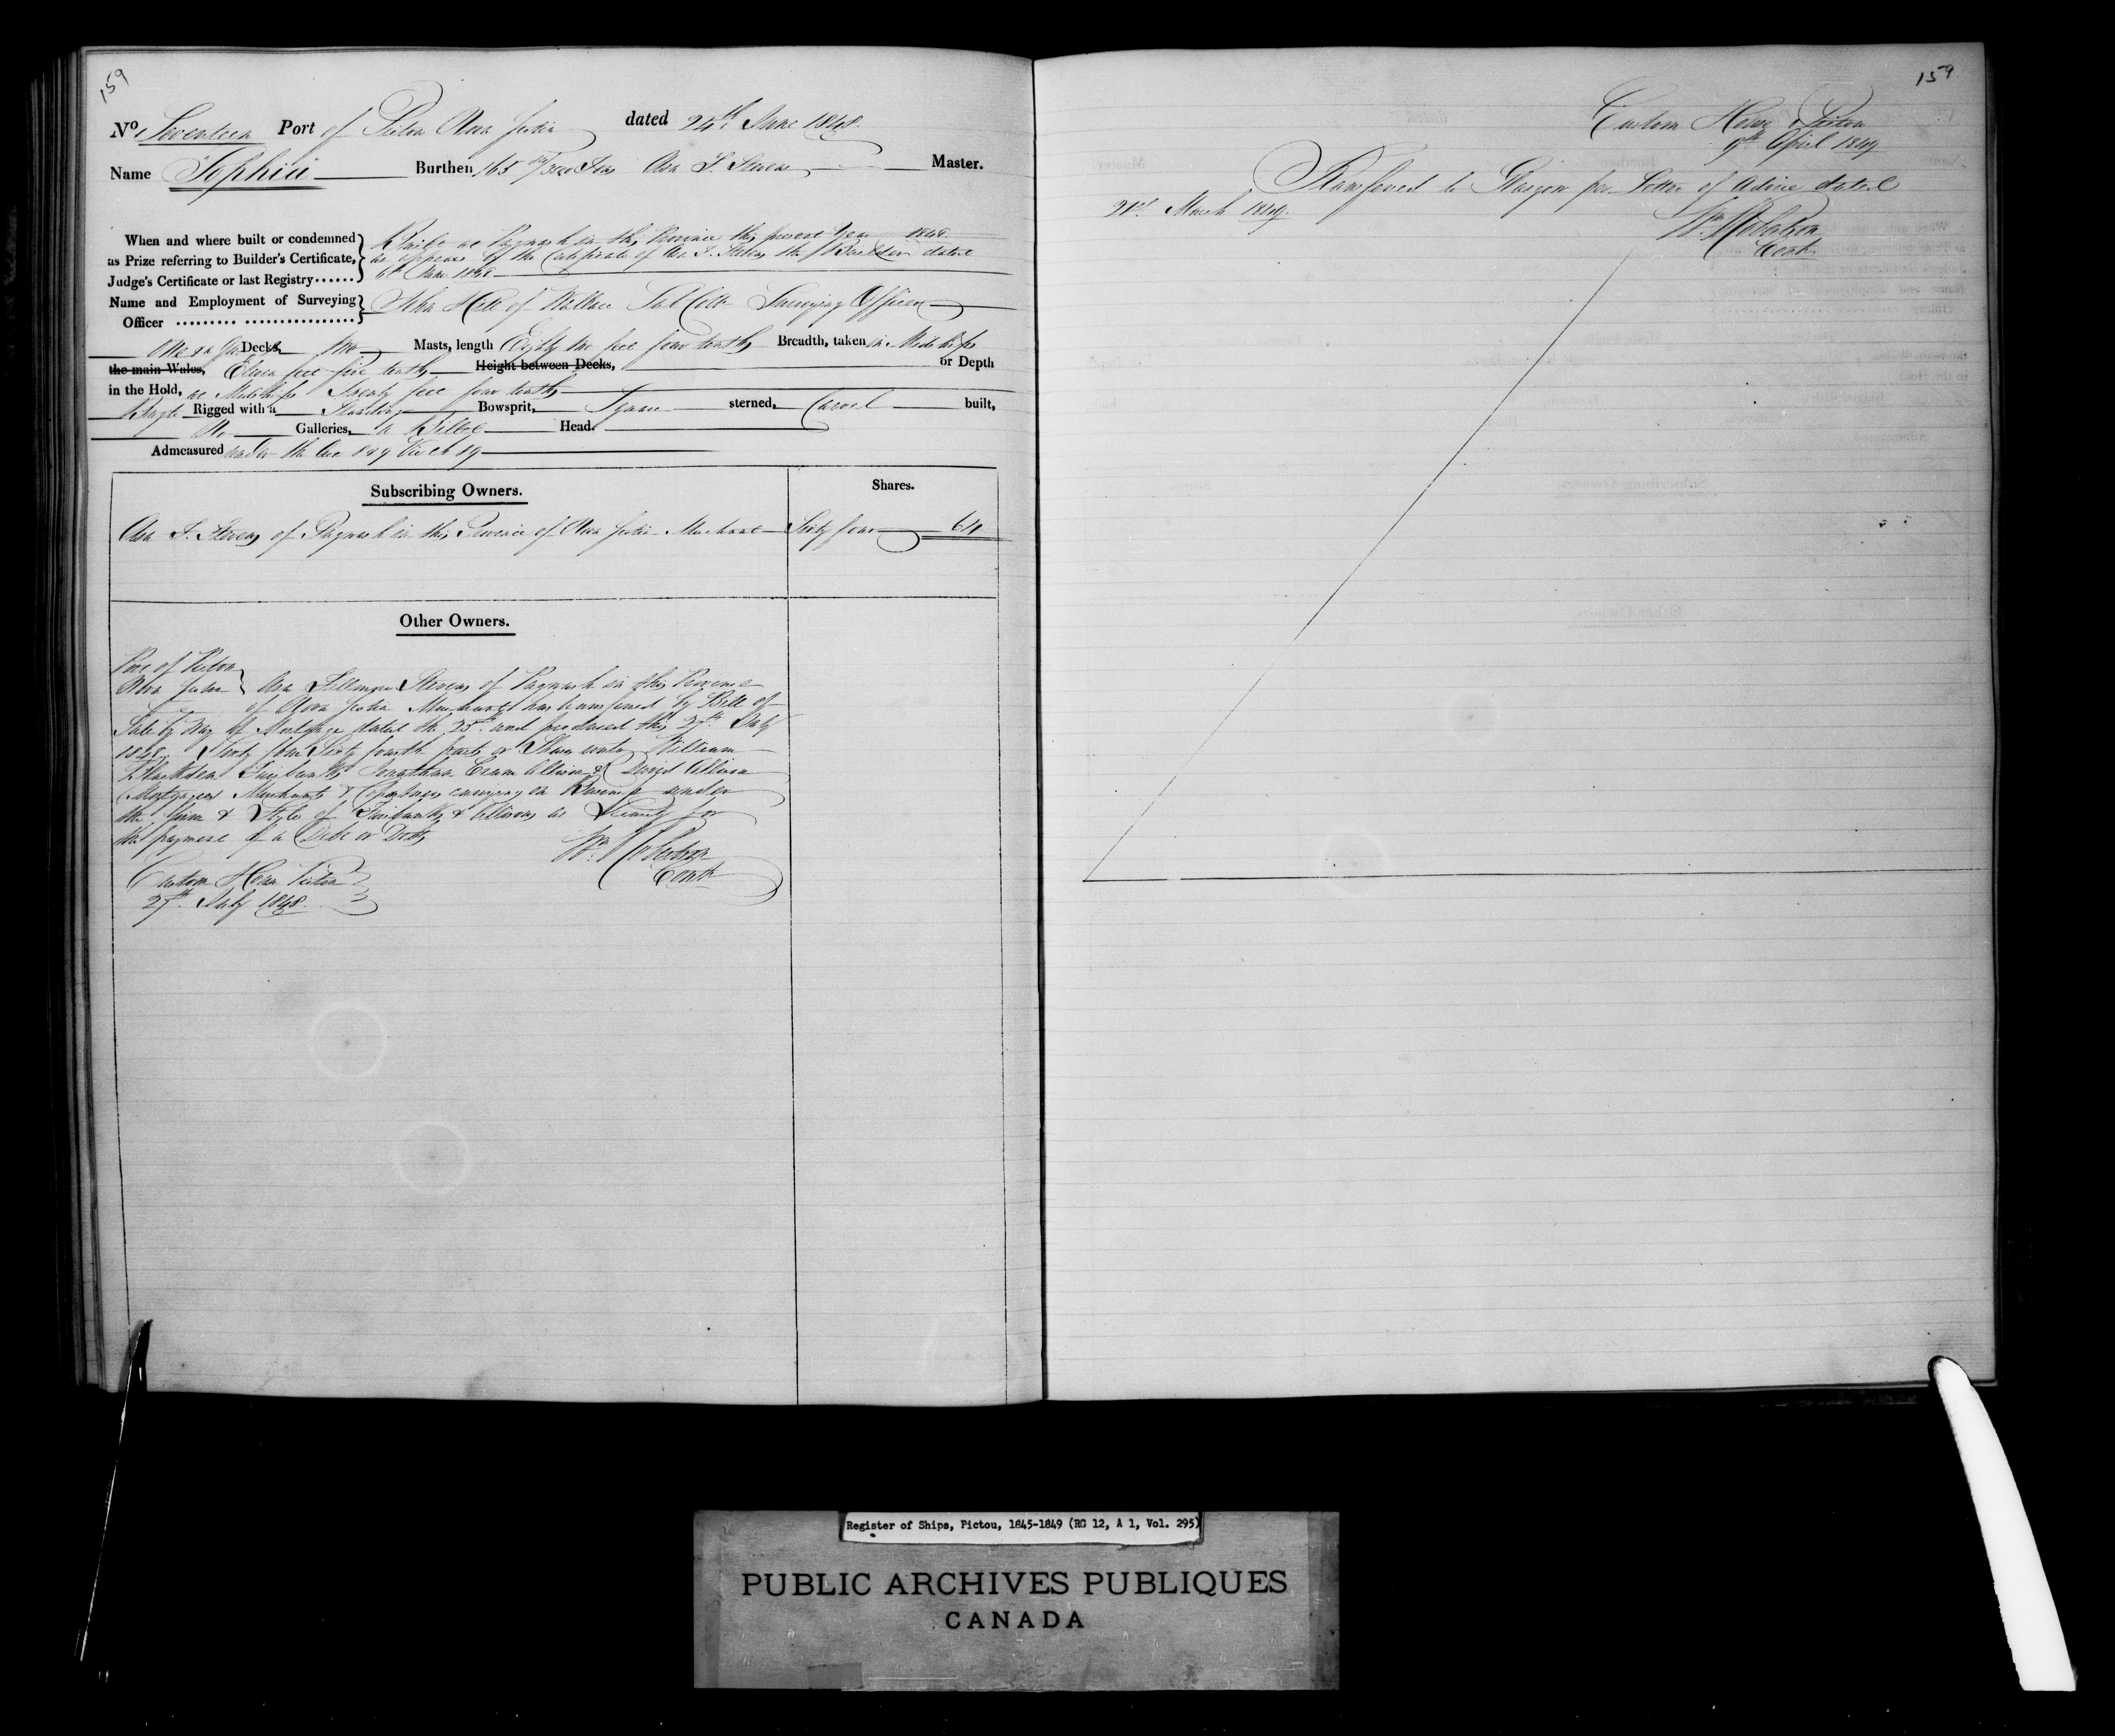 159
No. Seventeen Port of Pictou Nova Scotia dated 24th June 1848.
Name Sophia Burthen 165 /3500 Tons Asa S. Stevens Master.
When and where built or condemned as Prize referring to Builder's Certificate, Judge's Certificate or last Registry......
Built at Pugwash in this Province this present Year 1848
as appears by the Certificate of Asa S. Stevens the Builder dated
6th June 1848
Name and Employment of Surveying Officer ......... ................
John Hill of Wallace Sub Collr Surveying Officer
One & a Decks, Two Masts, length Eighty two feet four tenths Breadth, taken in Midships
the main Wales, Eleven feet five tenths Height between Decks, or Depth
in the Hold, at Midships Twenty feet four tenths
Brigt Rigged with a Standing Bowsprit, Square sterned, Carvel built,
No Galleries, a Billet Head.
Admeasured under the Act 8 & 9 Vic ch 89
Subscribing Owners. Shares.
Asa S. Stevens of Pugwash in this Province of Nova Scotia Merchant Sixty four 64
Other Owners.
Port of Pictou
Nova Scotia Asa Stevens of Pugwash in this Province
of Nova Scotia Merchant has transferred by Bill of
Sale by Way of Mortgage dated the 25th and produced this 27th July
1848 Sixty four Sixty fourth parts or Shares unto William
Blackden Fairbanks Jonathan Crane Allison & David Allison
Mortgagees Merchants & Copartners carrying on Business under
the firm & Style of Fairbanks & Allisons as Security for
the payment of a Debt or Debts
Wm. Robertson
Contr
Custom House Pictou
27th July 1848.
159
Custom House Pictou
9th April 1849
Transferred to Glasgow per Letter of Advice dated
21st March 1849.
Wm. Robertson
Contr
Register of Ships, Pictou, 1845-1849 (RG 12, A 1, Vol. 295)
PUBLIC ARCHIVES PUBLIQUES
CANADA